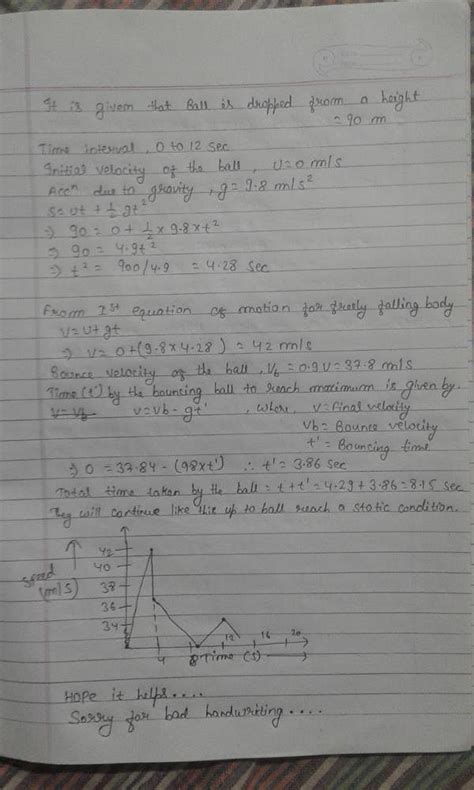 It is given that Ball is dropped from a height
= 90 m
Time interval, 0 to 12 sec
Initial velocity of the ball, u=0 m/s
Accⁿ due to gravity, g = 9.8 m/s²
S = ut + 1/2 gt²
⇒ 90 = 0 + 1/2 x 9.8 x t²
⇒ 90 = 4.9t²
⇒ t² = 900/4.9 = 4.28 sec
From 1st equation of motion for freely falling body
v = u + gt
⇒ v = 0+(9.8x4.28) = 42 m/s
Bounce velocity of the ball, Vb = 0.9V = 37.8 m/s
Time (t') by the bouncing ball to reach maximum is given by.
v = vb - gt' , where, v = Final velocity
Vb = Bounce velocity
t' = Bouncing time
⇒ 0 = 37.84 - (98xt') ∴ t' = 3.86 sec
Total time taken by the ball = t + t' = 4.29 + 3.86 = 8.15 sec.
will continue like this up to ball reach a static condition.
speed
(m/s)
42
40
38
36
34
4
8
12
16
20
Time (s)
Hope it helps....
Sorry for bad handwriting....